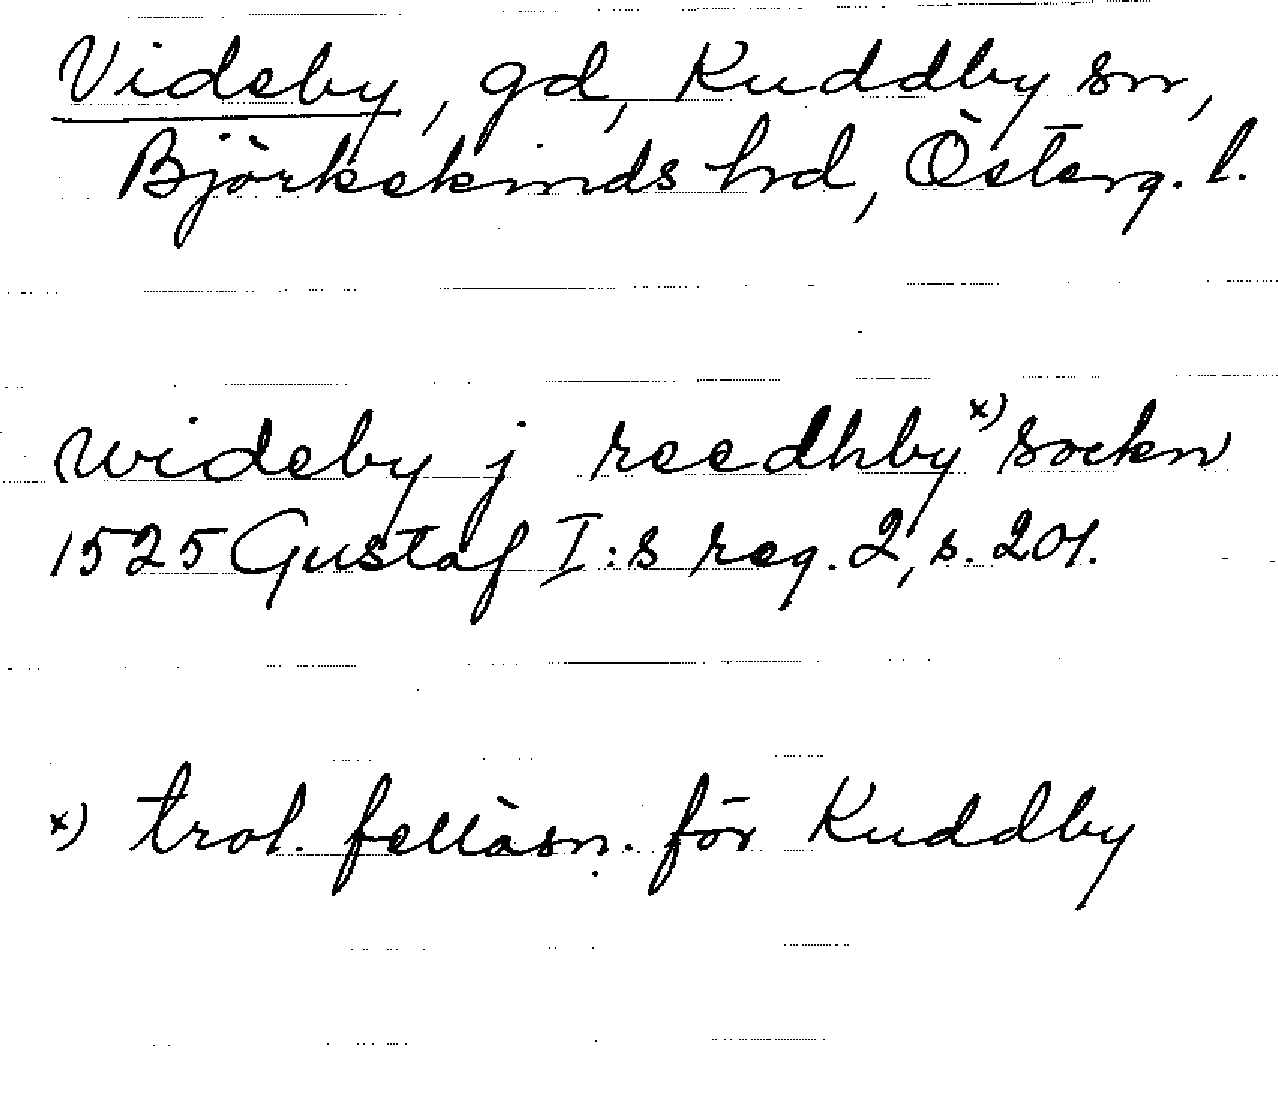 Videby, gd, Kuddby sn,
Björkekinds hd, Österg. l.
wideby j reedhby x) sockn
1525 Gustaf I:s reg. 2, s. 201.
x) trol. felläsn. för Kuddby